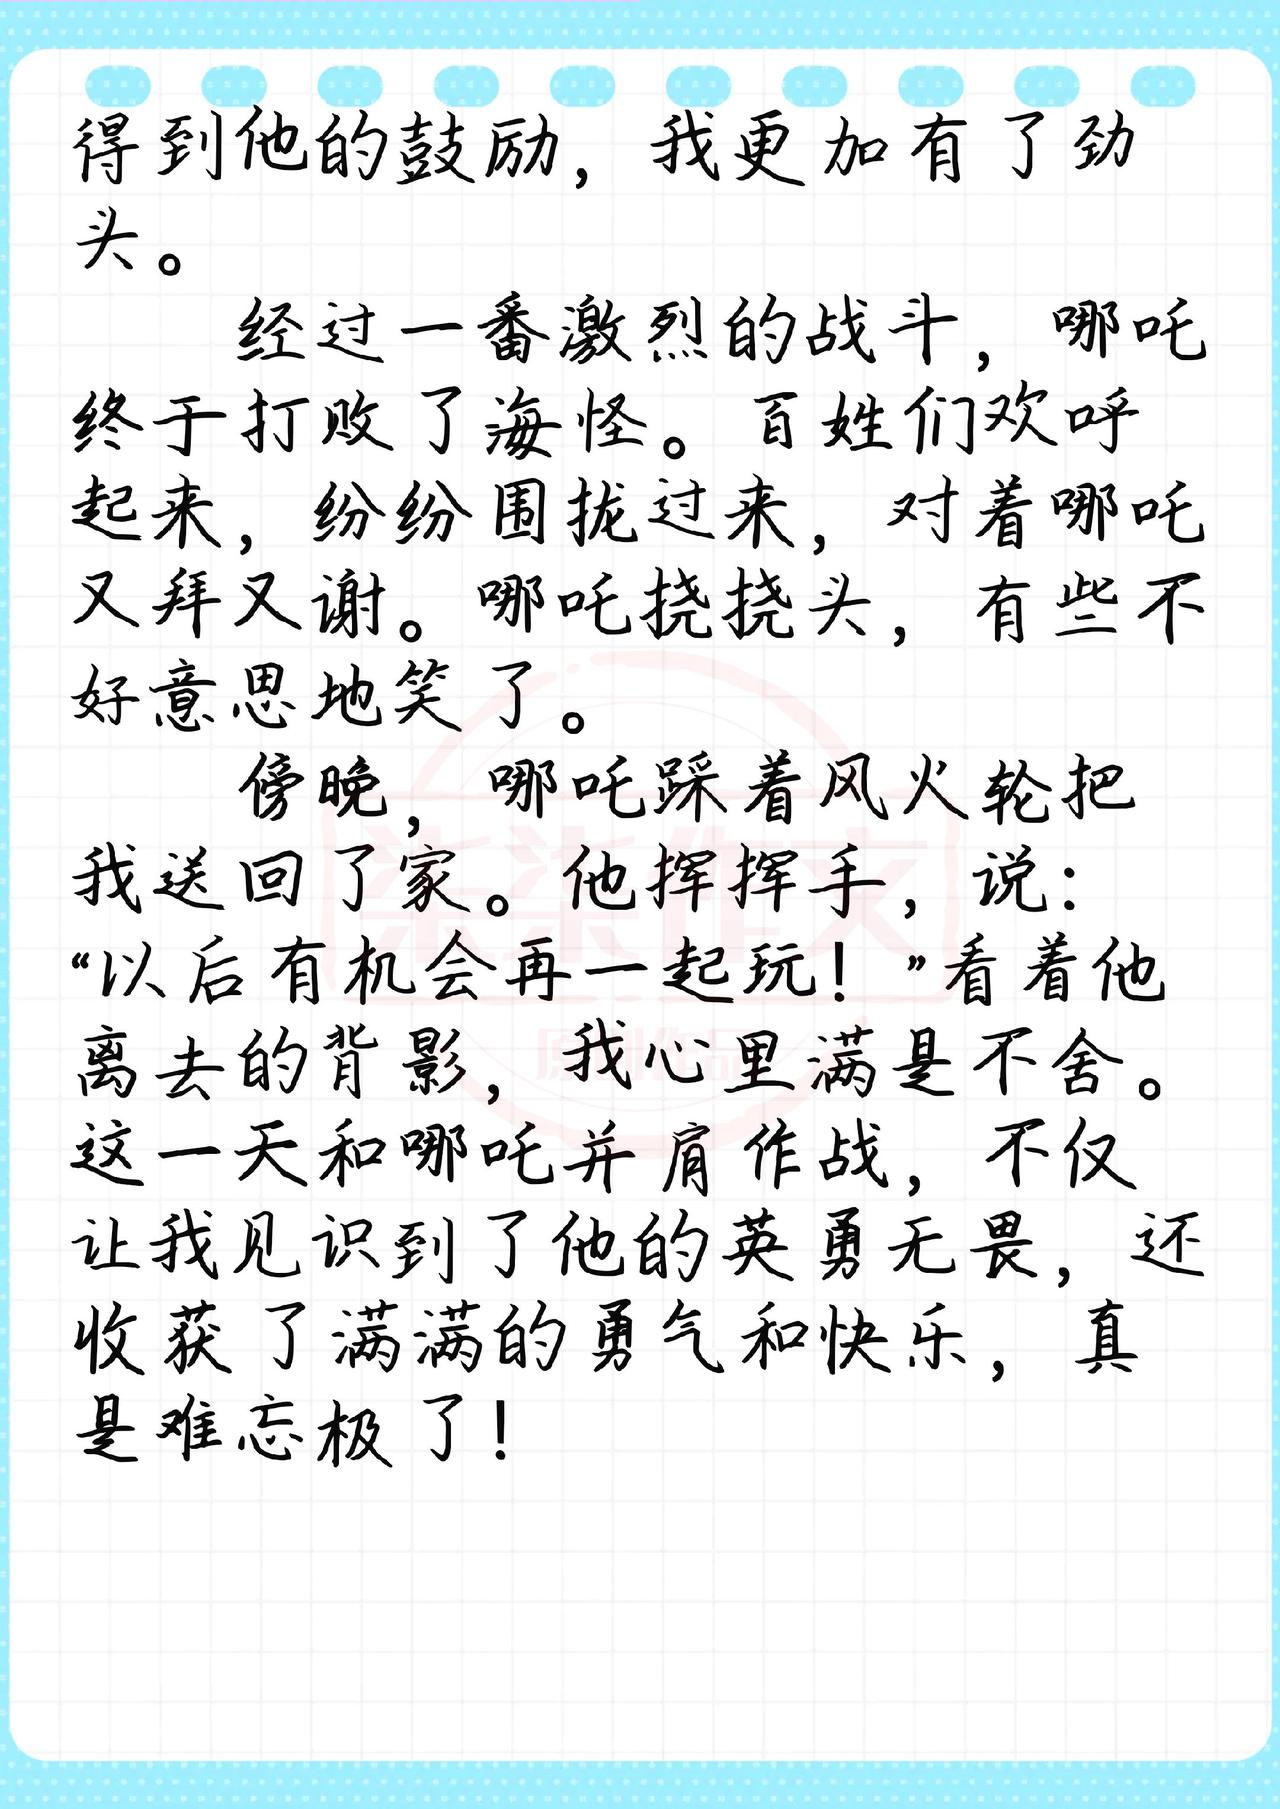 得到他的鼓励，我更加有了劲
头。
经过一番激烈的战斗，哪吒
终于打败了海怪。百姓们欢呼
起来，纷纷围拢过来，对着哪吒
又拜又谢。哪吒挠挠头，有些不
好意思地笑了。
傍晚，哪吒踩着风火轮把
我送回了家。他挥挥手，说：
“以后有机会再一起玩！”看着他
离去的背影，我心里满是不舍。
这一天和哪吒并肩作战，不仅
让我见识到了他的英勇无畏，还
收获了满满的勇气和快乐，真
是难忘极了！
柒柒作文
原创作品